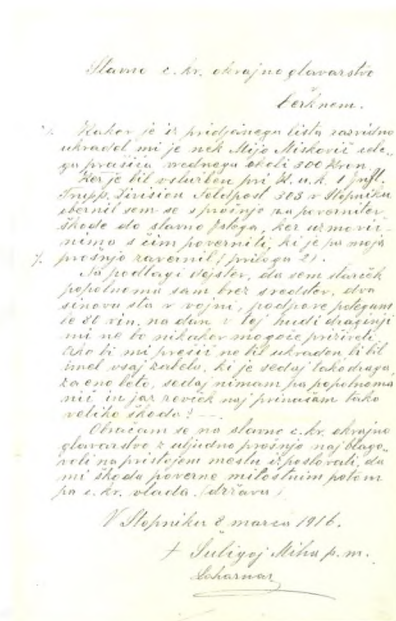 Slavno c. kr. okrajno glavarstvo
Čerknem.
Kakor je iz pridjanega lista razvidno
ukradel mi je nek Mijo Mišković cele
ga prašiča vrednega okoli 300 Kron
Ker je bil vslužben pri K. u. k. 1 Inft
Trupp. Division Feldpost 303 v Stopniku
obernil sem se s prošnjo za povernitev
škode do slavno
nimo s čim poverniti, ki je pa mojo
prošnjo zavernil (priloga 2).
Na podlagi dejstev, da sem starček
popolnoma sam brez sredstev, dva
sinova sta v vojni, podpore potegam
le 80 vin. na dan v tej hudi draginji
mi ne bo nikakor mogoče preživeti.
Ako bi mi prešič ne bil ukraden, bi bil
imel vsaj zabelo, ki je sedaj tako draga,
za eno leto, sedaj nimam pa popolnoma
nič in jaz revček naj prenašam tako
veliko škodo? —.
Obračam se na slavno c. kr. okrajno
glavarstvo z uljudno prošnjo naj blago„
voli na pristojem mestu izposlovati, da
mi škodo poverne milostnim potom
pa c. kr. vlada. (država)
V Stopniku 8 marca 1916.
+ Šuligoj Miha p. m.